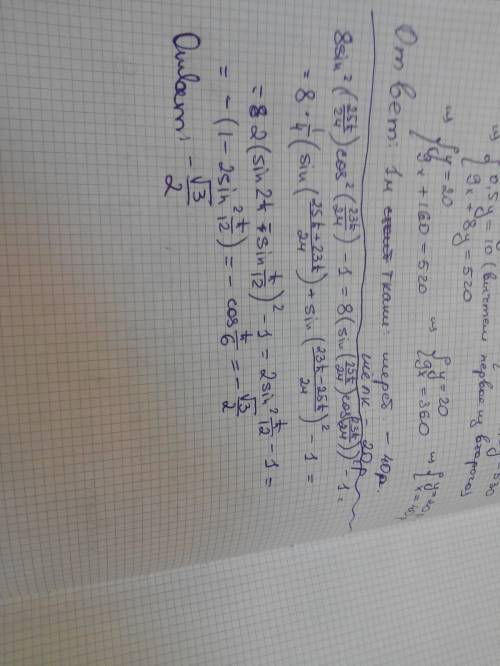 ⇔ { 0,5y = 10 (вычтем первое из второго)
9x + 8y = 520
⇔ { y = 20
9x + 160 = 520 ⇔ { y = 20
9x = 360 ⇔ { y = 20
x = 40
Ответ: 1м ткани: шерсть – 40р.
шёлк – 20р
8sin²(25π/24)cos²(23π/24) – 1 = 8(sin(25π/24)cos(23π/24))² – 1 =
= 8 · 1/4 (sin((25π+23π)/24) + sin((23π–25π)/24))² – 1 =
= 2(sin2π – sin π/12)² – 1 = 2sin² π/12 – 1 =
= – (1 – 2sin² π/12) = – cos π/6 = – √3/2
Ответ: – √3/2